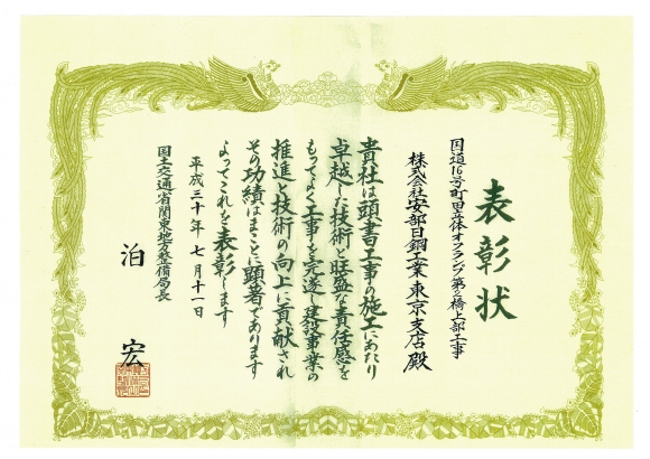 表彰状
国道16号町田立体オフランプ第2橋上部工事
株式会社安部日鋼工業 東京支店 殿
貴社は頭書工事の施工にあたり
卓越した技術と旺盛な責任感を
もってよく工事を完遂し建設事業の
推進と技術の向上に貢献され
その功績はまことに顕著であります
よってこれを表彰します
平成三十年七月十一日
国土交通省関東地方整備局長
泊 宏